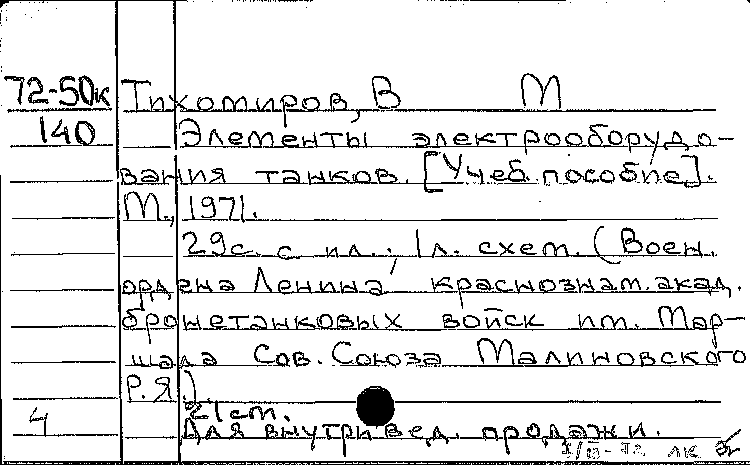 72-50к Тихомиров, В М
140 Элементы электрооборудо-
вания танков. [Учеб. пособие].
М., 1971.
29с. с ил.; 1л. схем. (Воен.
ордена Ленина краснознам. акад.
бронетанковых войск им. Мар-
шала Сов. Союза Малиновского
Р.Я.)
21 см.
4 Для внутривед. продажи.